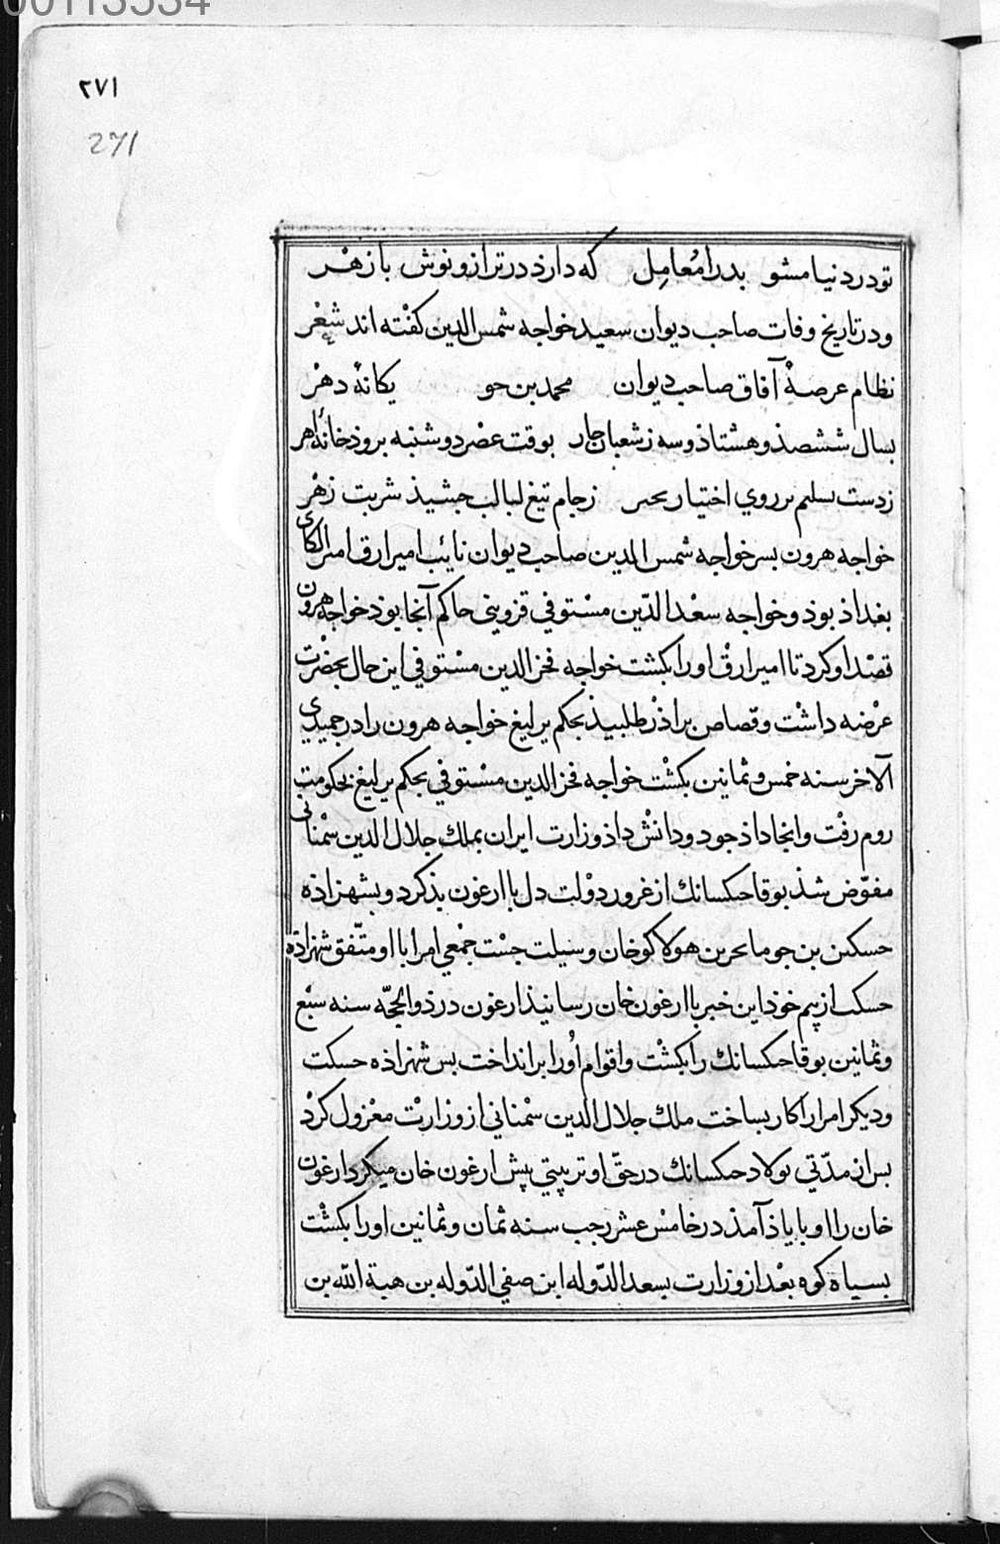 00113534
٢٧١
271
تو در دنیا مشو بد را معامل که دارذ در ترازو نوش با زهر
و در تاریخ وفات صاحب دیوان سعید خواجه شمس الدین کفته اند شعر
نظام عرصهٔ آفاق صاحب دیوان محمد بن جو یکانهٔ دهر
بسال ششصذ و هشتاذ و سه ز شعبان چار بوقت عصر دوشنبه بروذ خانهٔ اهر
ز دست تسلیم بر روی اختیار ز جام تیغ لبالب جشیذ شربت زهر
خواجه هرون بسر خواجه شمس الدین صاحب دیوان نایب امیر ارق امیر الکای
بغداذ بوذ و خواجه سعد الدّین مستوفی قزوینی حاکم آنجا بوذ خواجه هرون
قصد او کرد تا امیر ارق او را بکشت خواجه فخر الدین مستوفی این حال بحضرت
عرضه داشت و قصاص براذر طلبیذ بحکم یرلیغ خواجه هرون را در جمیدی
الآخر سنه خمس و ثمانین بکشت خواجه فخر الدین مستوفی بحکم یرلیغ بحکومت
روم رفت و انجا داذ جود و دانش داذ وزارت ایران بملك جلال الدین سمنانی
مفوّض شذ بوقا جنکسانك از غرور دولت دل با ارغون بذ کرد و بشهزاذه
حسکن بن جوما بن هولاکو خان وسیلت جست جمعی امرا با او متّفق شهزاذه
حسکب از بیم خوذ این خبر با ارغون خان رسانیذ ارغون در ذو الحجّه سنه سبع
و ثمانین بوقا جنکسانك را بکشت و اقوام اورا برانداخت بس شهزاذه حسکت
و دیکر امرا را کار بساخت ملك جلال الدین سمنانی از وزارت معزول کرد
بس از مدّتی بولاد جنکسانك در حقّ او تربیتی پیش ارغون خان میکرد ارغون
خان را او با یاذ آمذ در خامس عشر رجب سنه ثمان و ثمانین او را بکشت
بسیاه کوه بعد از وزارت بسعد الدّوله ابن صفی الدّوله بن هبة الله بن